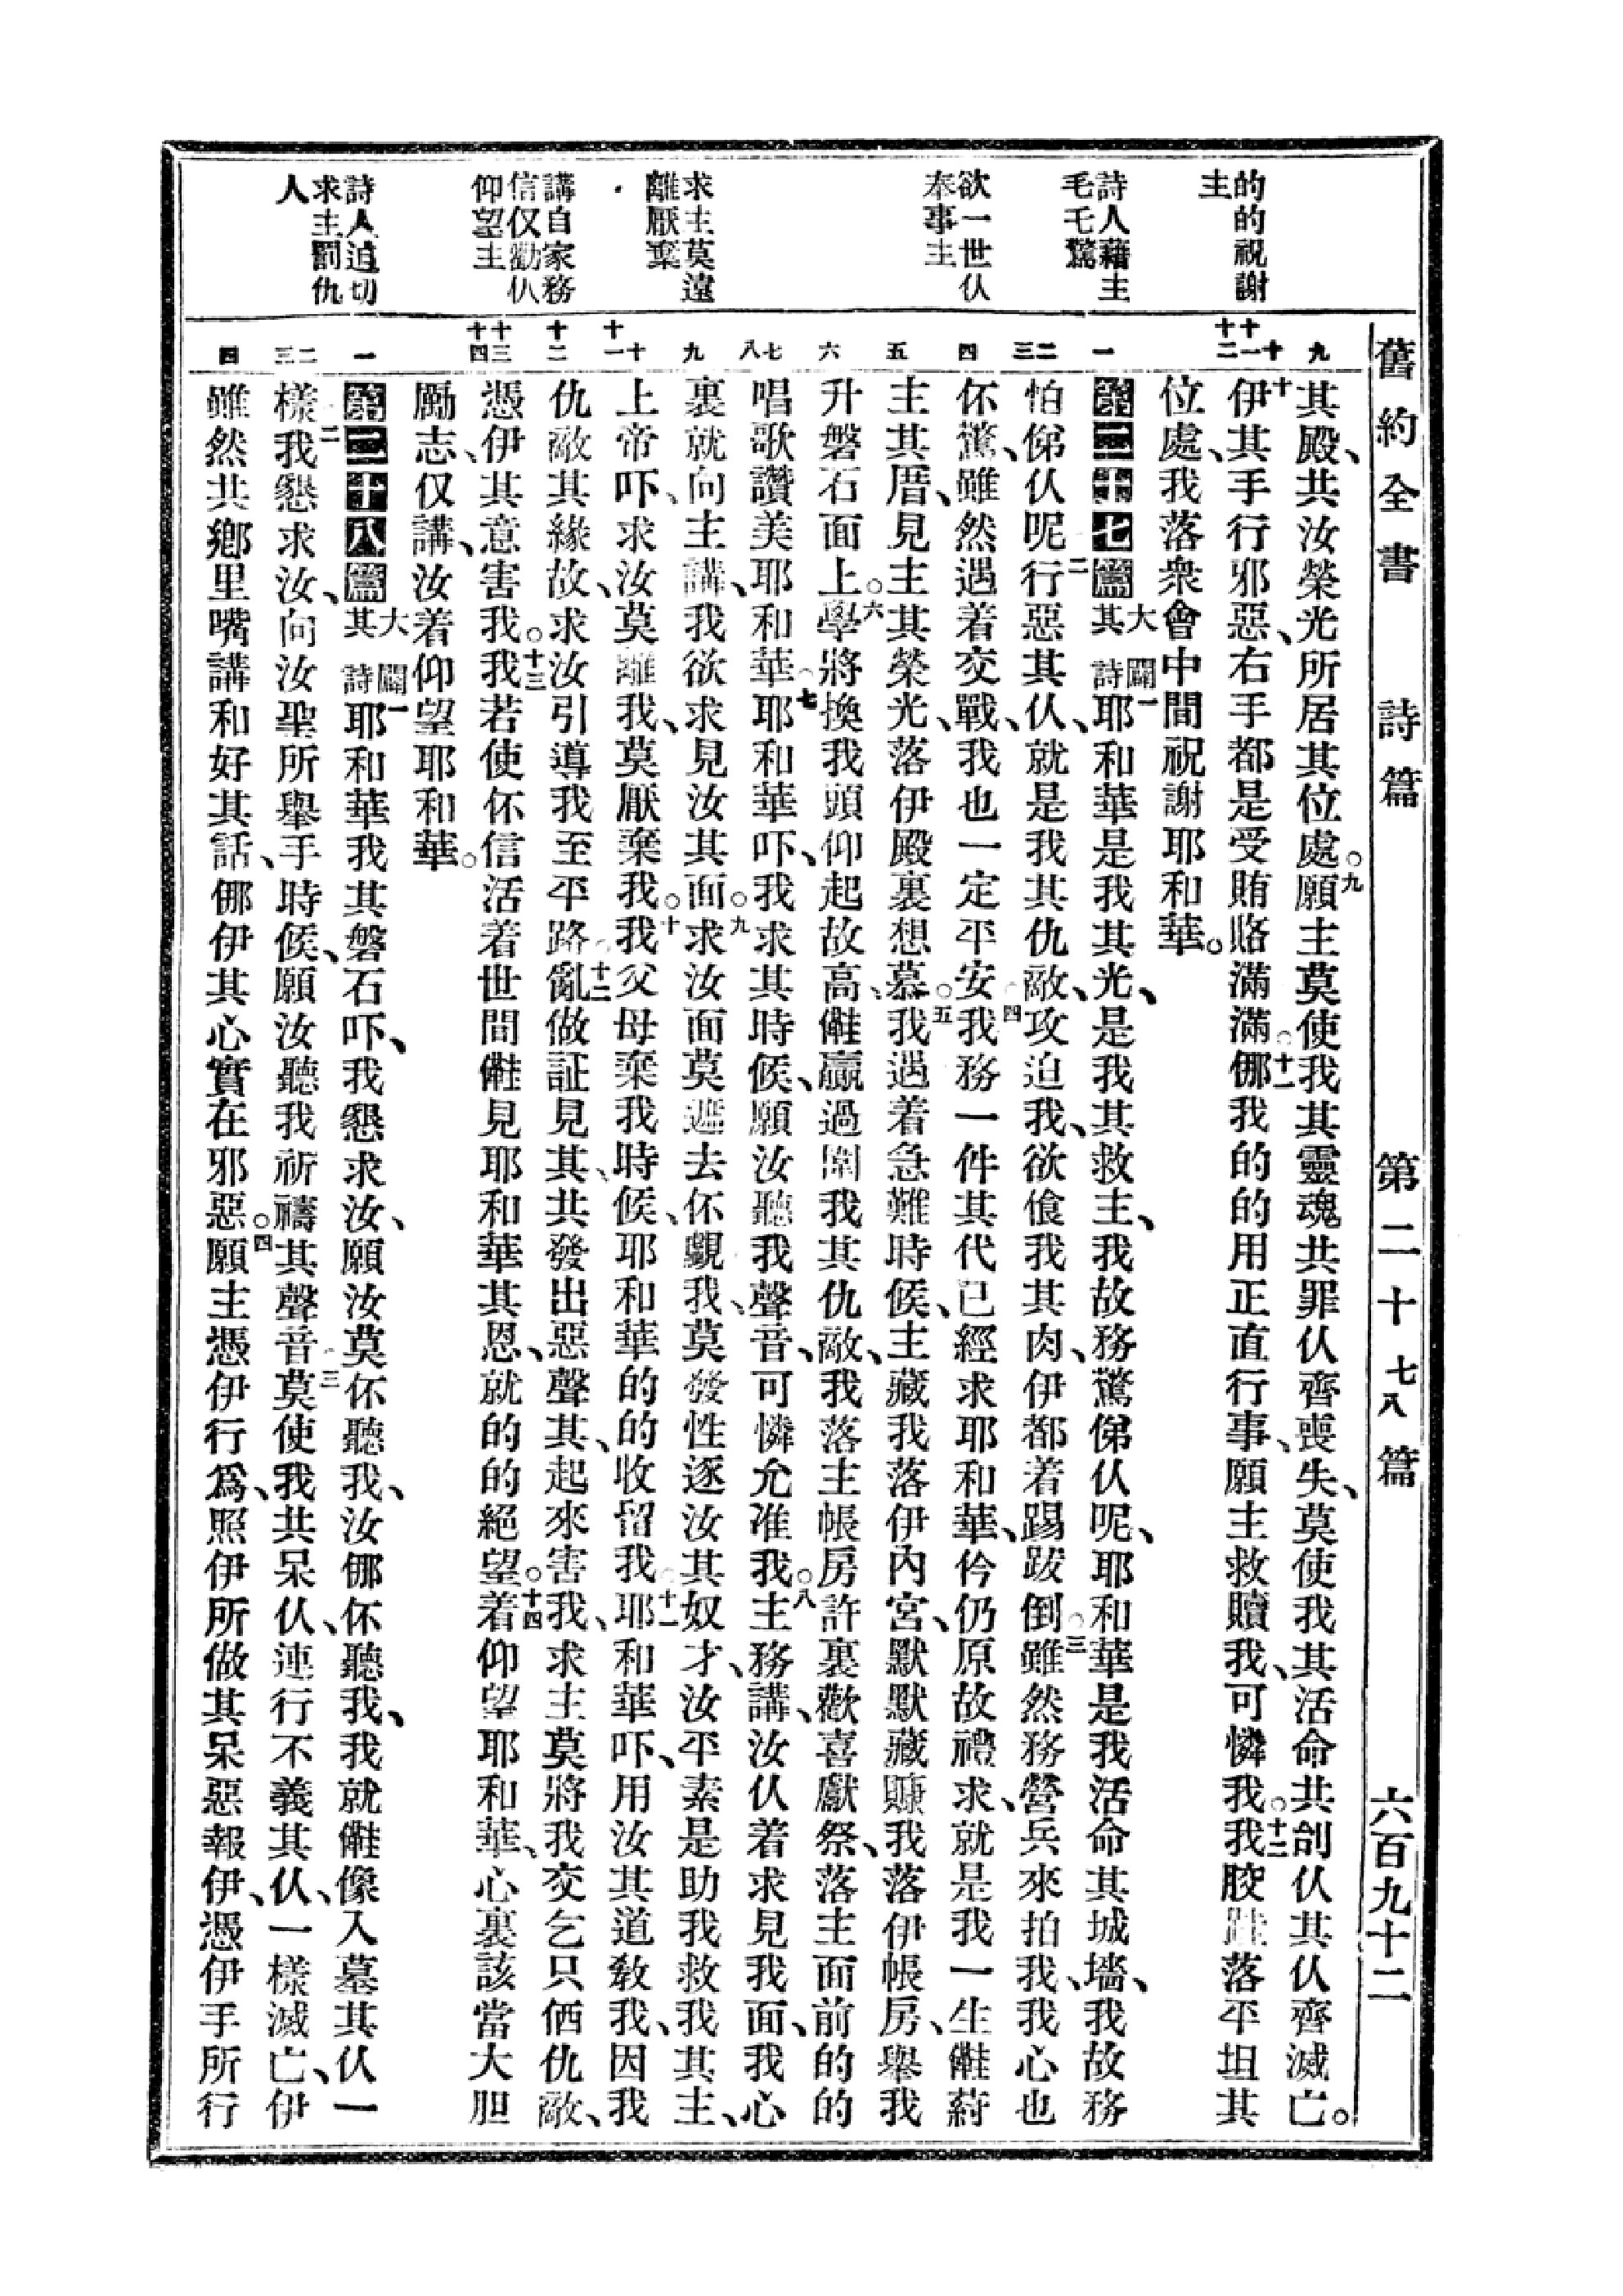 舊約全書 詩篇 第二十七八篇 六百九十二
的的祝謝
主
詩人藉主
毛乇驚
欲一世仈
奉事主
求主莫遠
離厭棄
講自家務
信仅勸仈
仰望主
詩人迫切
求主罰仇
人
九
十
十一
十二
一
二
三
四
五
六
七
八
九
十
十一
十二
十三
十四
一
二
三
四
其殿、共汝榮光所居其位處。九願主莫使我其靈魂共罪仈齊喪失、莫使我其活命共刣仈其仈齊滅亡。
十伊其手行邪惡、右手都是受賄賂滿滿。十一㑚我的的用正直行事、願主救贖我、可憐我。十二我骹落平坦其
位處、我落衆會中間祝謝耶和華。
第二十七篇 大闢其詩 一耶和華是我其光、是我其救主、我故務驚俤仈呢、耶和華是我活命其城墻、我故務
怕俤仈呢。二行惡其仈、就是我其仇敵、攻迫我、欲飡我其肉、伊都着踢跋倒。三雖然務營兵來拍我、我心也
伓驚、雖然遇着交戰、我也一定平安。四我務一件其代已經求耶和華、仱仍原故禮求、就是我一生㑚
主其厝、見主其榮光、落伊殿裏想慕。五我遇着急難時候、主藏我落伊內宮、默默藏賺我落伊帳房、舉我
升磐石面上。六學將換我頭仰起故高、贏過圍我其仇敵、我落主帳房許裏歡喜獻祭、落主面前的的
唱歌讚美耶和華。七耶和華吓、我求其時候、願汝聽我聲音、可憐允准我。八主務講、汝仈着求見我面、我心
裏就向主講、我欲求見汝其面。九求汝面莫遮去伓覷我、莫發性逐汝其奴才、汝平素是助我救我其主、
上帝吓、求汝莫離我、莫厭棄我。十我父母棄我時候、耶和華的的收留我。十一耶和華吓、用汝其道教我、因我
仇敵其緣故、求汝引導我至平路。十二亂做証見其、共發出惡聲其、起來害我、求主莫將我交乞只價仇敵、
憑伊其意害我。十三我若使伓信活着世間見耶和華其恩、就的的絕望。十四着仰望耶和華、心裏該當大胆
勵志、仅講、汝着仰望耶和華。
第二十八篇 大闢其詩 一耶和華我其磐石吓、我懇求汝、願汝莫伓聽我、汝㑚伓聽我、我就像入墓其仈一
樣。二我懇求汝、向汝聖所舉手時候、願汝聽我祈禱其聲音。三莫使我共呆仈、連行不義其仈、一樣滅亡、伊
雖然共鄉里嘴講和好其話、㑚伊其心實在邪惡。四願主憑伊行爲、照伊所做其呆惡報伊、憑伊手所行